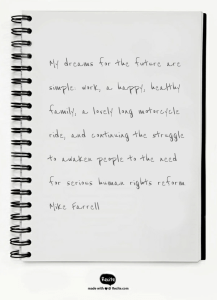 My dreams for the future are
simple work, a happy, healthy
family, a lovely long motorcycle
ride, and continuing the struggle
to awaken people to the need
for serious human rights reform
Mike Farrell
Recite
made with ♥ @ Recite.com